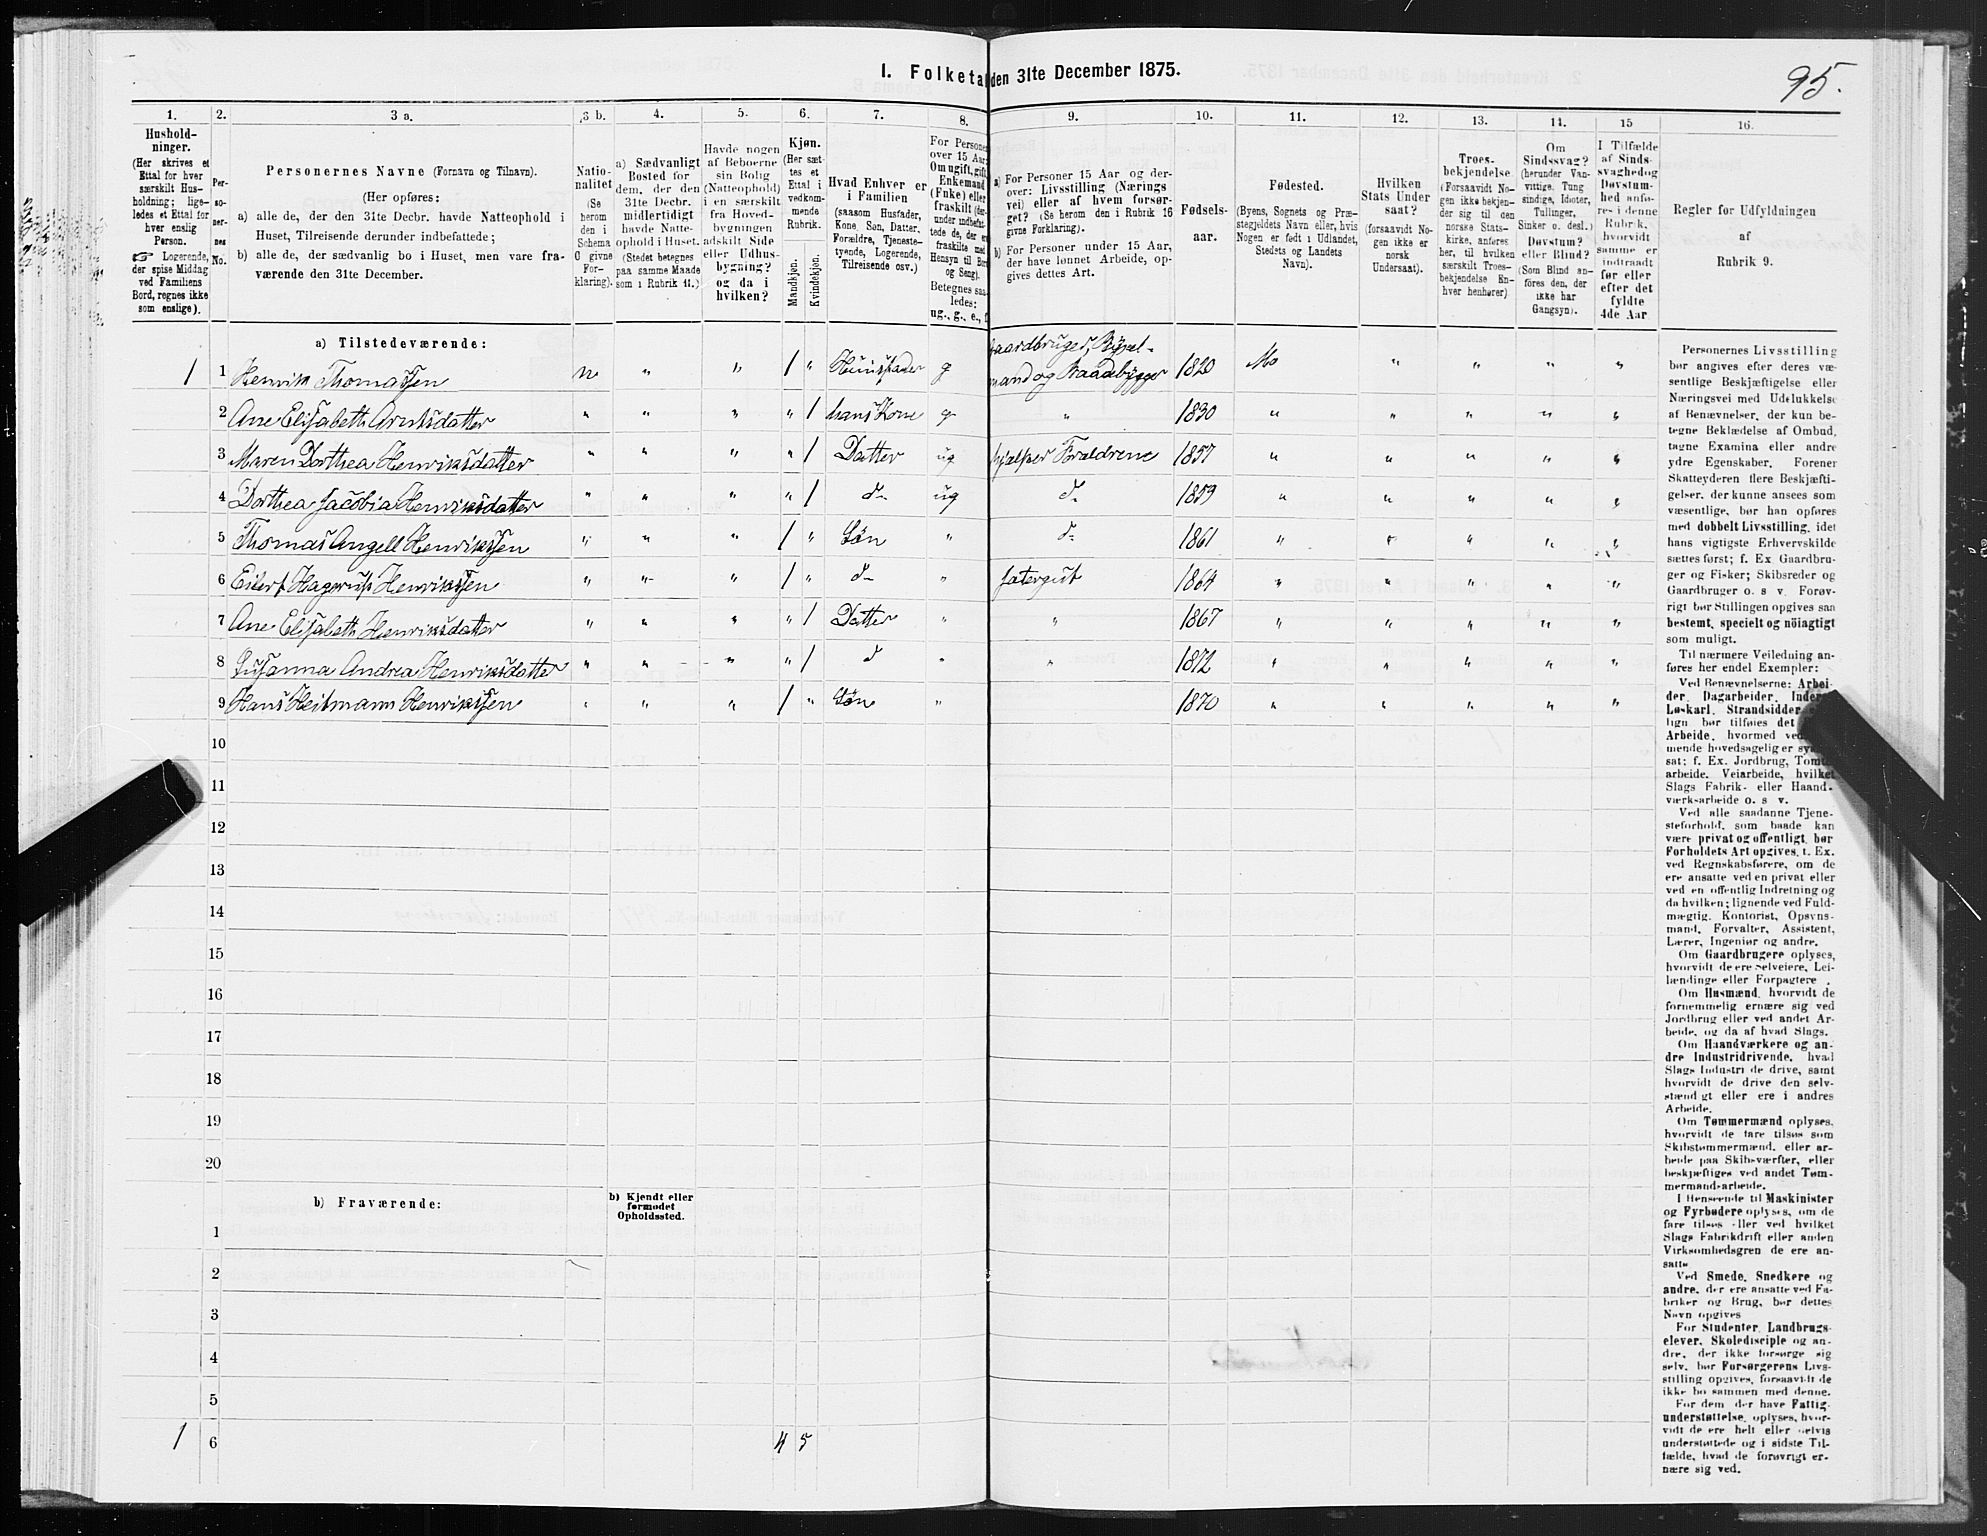 I. Folketal den 31te December 1875.
95.
1.
2.
3 a.
3 b.
4.
5.
6.
7.
8.
9.
10.
11.
12.
13.
14.
15
16.
Hushold-
ninger.
(Her skrives et
Ettal for hver
særskilt Hus-
holdning; lige-
ledes et Ettal for
hver enslig
Person.
☞ Logerende,
der spise Middag
ved Familiens
Bord, regnes ikke
som enslige).
Per-
so-
ner-
nes
No.
Personernes Navne (Fornavn og Tilnavn).
(Her opføres:
a) alle de, der den 31te Decbr. havde Natteophold i
Huset, Tilreisende derunder indbefattede;
b) alle de, der sædvanlig bo i Huset, men vare fra-
værende den 31te December.
Natio-
nalitet
(Se
herom
den i
Schema
C givne
For-
klaring).
a) Sædvanligt
Bosted for
dem, der den
31te Decbr.
midlertidigt
havde Natte-
ophold i Huset.
(Stedet betegnes
paa samme Maade
som i Rubrik 11.)
Havde nogen
af Beboerne
sin Bolig
(Natteophold)
i en særskilt
fra Hoved-
bygningen
adskilt Side
eller Udhus-
bygning?
og da i
hvilken?
Kjøn.
(Her sæt-
tes et
Ettal i
vedkom-
mende
Rubrik.
Mandkjøn.
Kvindekjøn.
Hvad Enhver er
i Familien
(saasom Husfader,
Kone, Søn, Datter,
Forældre, Tjeneste-
tyende, Logerende,
Tilreisende osv.)
For Persone
over 15 Aar:
Om ugift, gift,
Enkemand
(Enke) eller
fraskilt (der-
under indbefat-
tede de, der e
fraskilte med
Hensyn til Bor
og Seng).
Betegnes saa-
ledes:
ug., g., e., f.
a) For Personer 15 Aar og der-
over: Livsstilling (Nærings
vei) eller af hvem forsør-
get? (Se herom den i Rubrik 16
givne Forklaring).
b) For Personer under 15 Aar,
der have lønnet Arbeide, op-
gives dettes Art.
Fødsels-
aar.
Fødested.
(Byens, Sognets og Præ-
stegjeldets Navn eller, hvis
Nogen er født i Udlandet,
Stedets og Landets
Navn).
Hvilken
Stats Under
saat?
(forsaavidt No-
gen ikke er
norsk
Undersaat).
Troes-
bekjendelse
(Forsaavidt No-
gen ikke bekjen-
der sig til den
norske Stats-
kirke, anføres
her, til hvilken
særskilt Troes-
bekjendelse En-
hver henhører)
Om
Sindssvag?
(herunder Van-
vittige, Tung
sindige, Idioter,
Tullinger,
Sinker o. desl.)
Døvstum?
eller Blind?
(Som Blind an-
føres den, der
ikke har
Gangsyn).
I Tilfælde
af Sinds-
svaghed og
Døvstum-
hed anfø-
res i denne
Rubrik,
hvorvidt
samme er
indtraadt
før eller
efter det
fyldte
4de Aar
Regler for Udfyldningen
af
Rubrik 9.
a) Tilstedeværende:
1 1 Henrik Thomassen n " " 1 " Huusfader g Gaardbruger, Byxel-
mand og Baadebygger 1820 Mo " " " "
2 Ane Elisabeth Arntsdatter " " " " 1 hans Kone g " 1830 " " " " "
3 Maren Dorthea Henriksdatter " " " " 1 Datter ug hjælper Forældrene 1857 " " " " "
4 Dorthea Jacobia Henriksdatter " " " " 1 d- ug d- 1859 " " " " "
5 Thomas Angell Henrikssen " " " 1 " Søn " d- 1861 " " " " "
6 Eilert Hagerup Henrikssen " " " 1 " d- " Jætergut 1864 " " " " "
7 Ane Elisabeth Henriksdatter " " " " 1 Datter " " 1867 " " " " "
8 Susanna Andrea Henriksdatter " " " " 1 d " " 1872 " " " " "
9 Hans Heitmann Henrikssen " " " 1 " Søn " 1870 " " " " "
10
11
12
13
14
15
16
17
18
19
20
b) Fraværende:
b) Kjendt eller
formodet
Opholdssted.
1
2
3
4
5
1 6 4 5
Personernes Livsstilling
bør angives efter deres væ-
sentlige Beskjæftigelse eller
Næringsvei med Udelukkelse
af Benævnelser, der kun be-
tegne Beklædelse af Ombud,
tagne Examina eller andre
ydre Egenskaber. Forener
Skatteyderen flere Beskjæfti-
gelser, der kunne ansees som
væsentlige, bør han opføres
med dobbelt Livsstilling, idet
hans vigtigste Erhvervskilde
sættes først; f. Ex Gaardbru-
ger og Fisker; Skibsreder og
Gaardbruger o. s v. Forøv-
rigt bør Stillingen opgives saa
bestemt, specielt og nöiagtigt
som muligt.
Til nærmere Veiledning an-
føres her endel Exempler:
Ved Benævnelserne: Arbei-
der, Dagarbeider, Inder
Løskarl, Strandsidder
lign bør tilføies det
Arbeide, hvormed ved
mende hovedsagelig er sys
sat; f. Ex. Jordbrug, Tomt
arbeide, Veiarbeide, hvilket
Slags Fabrik- eller Haand-
værksarbeide o. s v.
Ved alle saadanne Tjene-
steforhold, som baade kan
være privat og offentligt, bør
Forholdets Art opgives, t. Ex.
ved Regnskabsførere, om de
ere ansatte ved en privat eller
ved en offentlig Indretning og
da hvilken; lignende ved Fuld-
mægtig, Kontorist, Opsyns-
mand, Forvalter, Assistent,
Lærer, Ingeniør og andre.
Om Gaardbrugere oplyses,
hvorvidt de ere Selveiere, Lei-
lændinge eller Forpagtere.
Om Husmænd, hvorvidt de
fornemmelig ernære sig ved
Jordbrug eller ved andet Ar-
beide, og da af hvad Slags.
Om Haandværkere og an-
dre Industridrivende, hvad
Slags Industri de drive, samt
hvorvidt de drive den selv-
stændigt eller ere i andres
Arbeide.
Om Tømmermænd oplyses,
hvorvidt de fare tilsøs som
Skibstømmermænd, eller ar-
beide paa Skibsværfter, eller
beskjæftiges ved andet Tøm-
mermandsarbeide.
I Henseende til Maskinister
og Fyrbødere oplyses, om de
fare tilsøs eller ved hvilket
Slags Fabrikdrift eller anden
Virksomhedsgren de ere an-
satte
Ved Smede, Snedkere og
andre, der ere ansatte ved Fa-
briker og Brug, bør dettes
Navn opgives
For Studenter, Landbrugs-
elever, Skoledisciple og an-
dre, der ikke forsørge sig
selv, bør Forsørgerens Livs-
stilling opgives, forsaavidt de
ikke bo sammen med denne.
For dem der have Fattig-
understøttelse, oplyses, hvor-
vidt de ere helt eller delvis
understøttede og i sidste Til-
fælde, hvad de forøvrigt er-
nære sig ved.